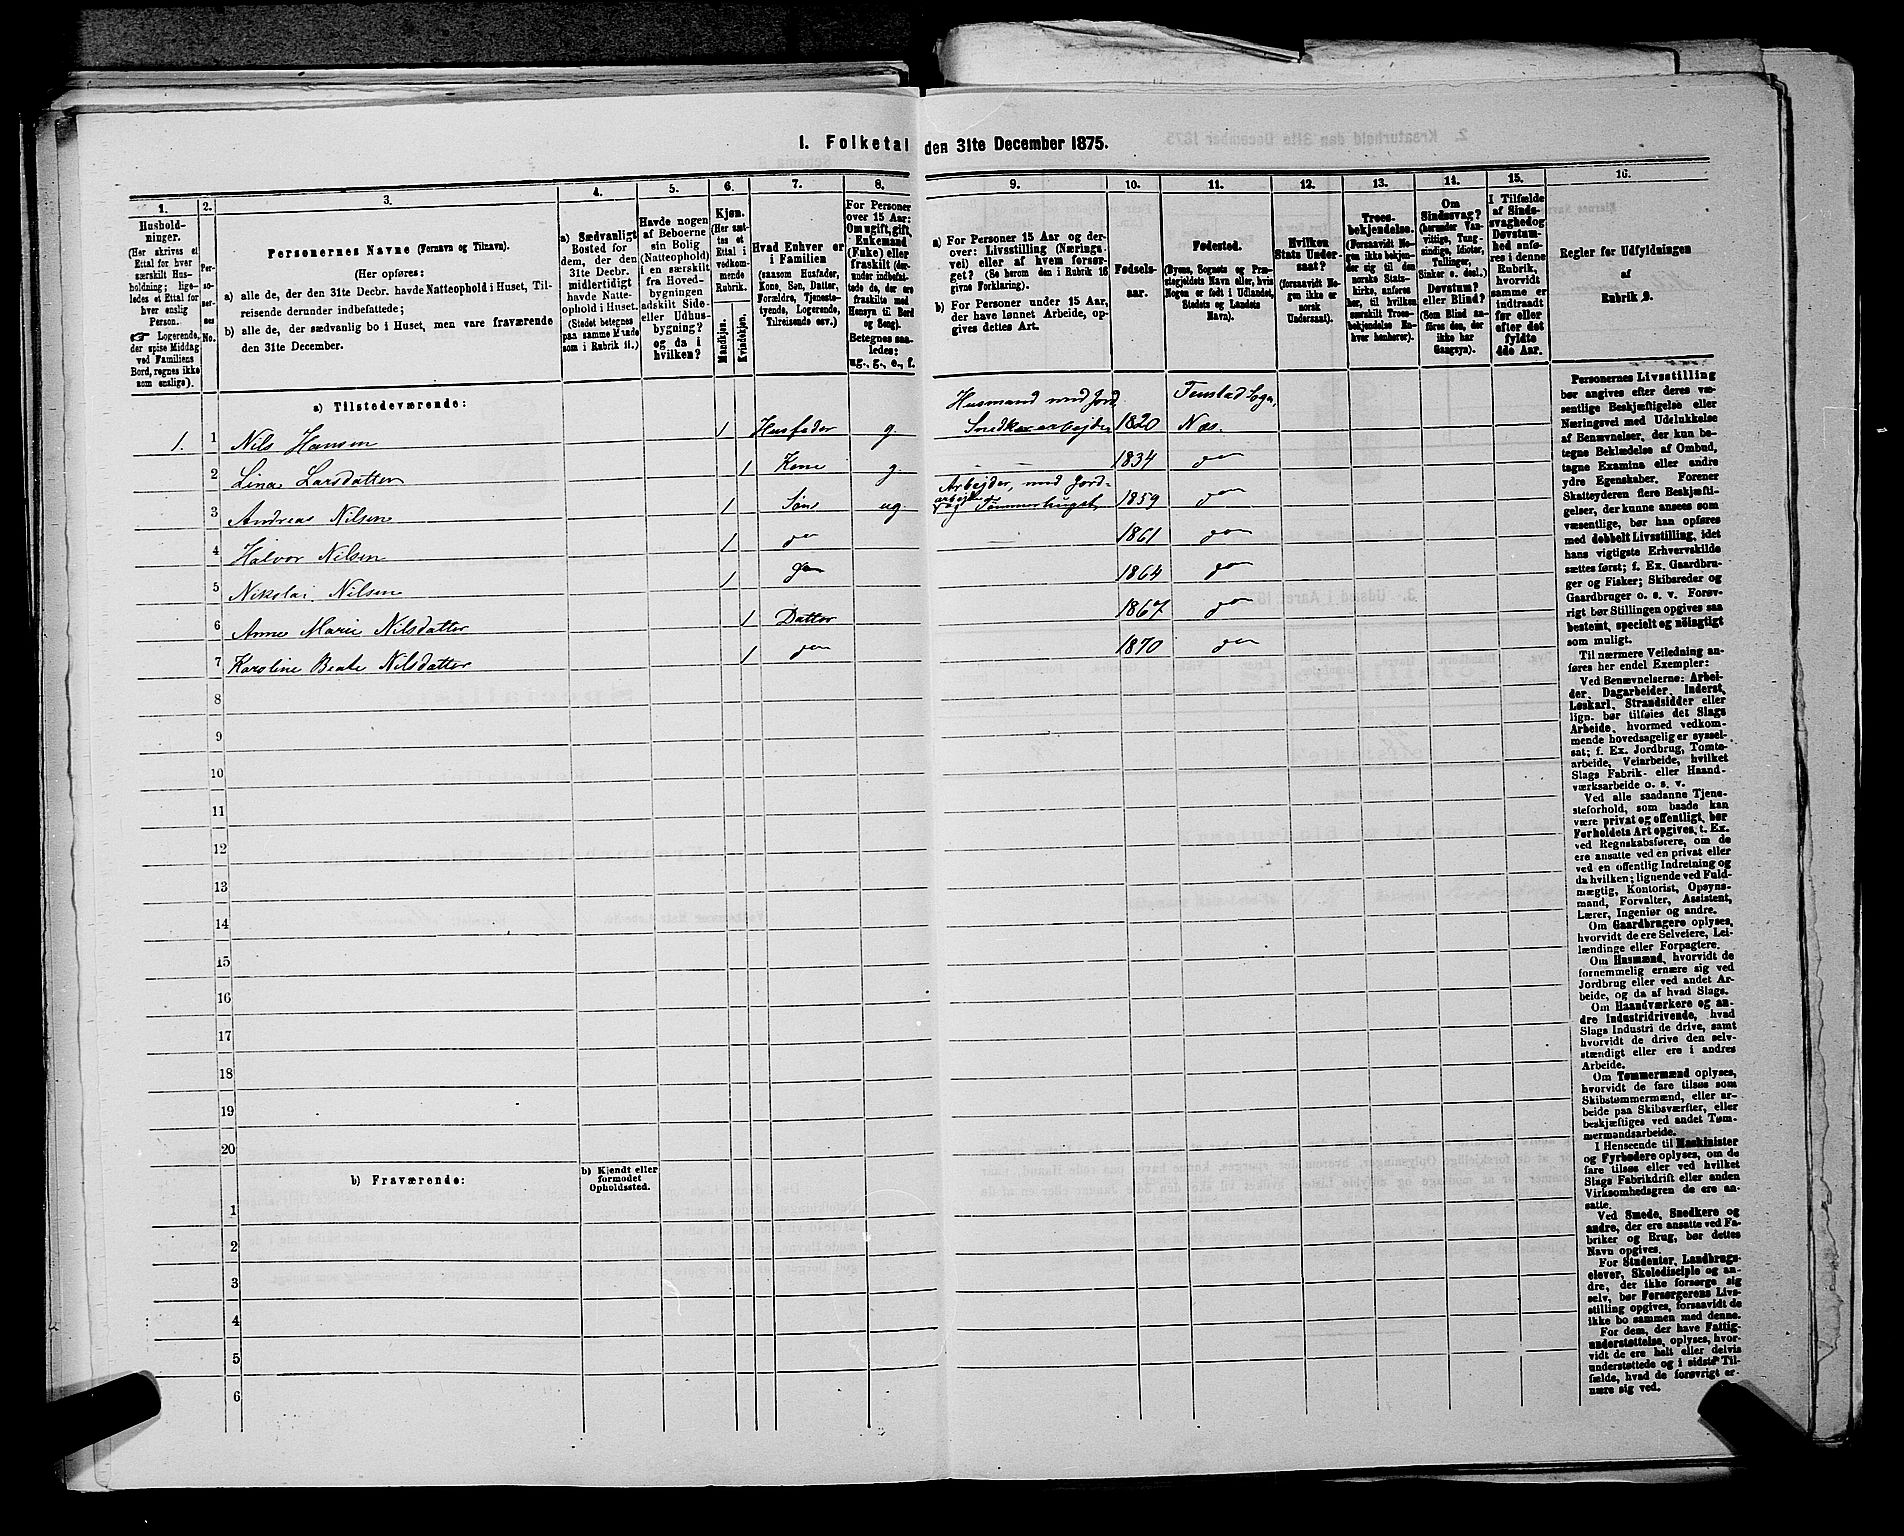 1. Folketal den 31te December 1875.
1. 2. 3. 4. 5. 6. 7. 8. 9. 10. 11. 12. 13. 14. 15. 16.
Hushold-
ninger.
(Her skrives et
Ettal for hver
særskilt Hus-
holdning; lige-
ledes et Ettal for
hver enslig
Person.
☞ Logerende,
der spise Middag
ved Familiens
Bord, regnes ikke
som enslige).
Per-
so-
ner-
nes
No.
Personernes Navne (Fornavn og Tilnavn).
(Her opføres:
a) alle de, der den 31te Decbr. havde Natteophold i Huset, Til-
reisende derunder indbefattede;
b) alle de, der sædvanlig bo i Huset, men vare fraværende
den 31te December.
a) Sædvanligt
Bosted for
dem, der den
31te Decbr.
midlertidigt
havde Natte-
ophold i Huset.
(Stedet betegnes
paa samme Maade
som i Rubrik 11.)
Havde nogen
af Beboerne
sin Bolig
(Natteophold)
i en særskilt
fra Hoved-
bygningen
adskilt Side-
eller Udhus-
bygning?
og da i
hvilken?
Kjøn.
(Her sæt-
tes et
Ettal i
vedkom-
mende
Rubrik.
Mandkjøn.
Kvindekjøn.
Hvad Enhver er
i Familien
(saasom Husfader,
Kone, Søn, Datter,
Forældre, Tjeneste-
tyende, Logerende,
Tilreisende osv.)
For Personer
over 15 Aar:
Om ugift, gift,
Enkemand
(Enke) eller
fraskilt (der-
under indbefat-
tede de, der ere
fraskilte med
Hensyn til Bord
og Seng).
Betegnes saa-
ledes:
ug., g., e., f.
a) For Personer 15 Aar og der-
over: Livsstilling (Nærings-
vei) eller af hvem forsør-
get? (Se herom den i Rubrik 16
givne Forklaring).
b) For Personer under 15 Aar,
der have lønnet Arbeide, op-
gives dettes Art.
Fødsels-
aar.
Fødested.
(Byens, Sognets og Præ-
stegjeldets Navn eller, hvis
Nogen er født i Udlandet,
Stedets og Landets
Navn).
Hvilken
Stats Under-
saat?
(forsaavidt No-
gen ikke er
norsk
Undersaat).
Troes-
bekjendelse.
(Forsaavidt No-
gen ikke bekjen-
der sig til den
norske Stats-
kirke, anføres
her, til hvilken
særskilt Troes-
bekjendelse En-
hver henhører).
Om
Sindssvag?
(herunder Van-
vittige, Tung-
sindige, Idioter,
Tullinger,
Sinker o. desl.)
Døvstum?
eller Blind?
(Som Blind an-
føres den, der
ikke har
Gangsyn).
I Tilfælde
af Sinds-
svaghed og
Døvstum-
hed anfø-
res i denne
Rubrik,
hvorvidt
samme er
indtraadt
før eller
efter det
fyldte
4de Aar.
Regler før Udfyldningen
af
Rubrik 9.
a) Tilstedeværende:
Husmand med Jord, Fenstad Sogn,
1. 1 Nils Hansen 1 Husfader g. Snedkerarbejder 1820 Næs.
2 Lina Larsdatter 1 Kone g. 1834 do
Arbejder, med Jord-
arbejde
3 Andreas Nilsen 1 Søn ug og Tømmerhugst 1859 do
4 Halvor Nilsen 1 do 1861 do
5 Nikolai Nilsen 1 do 1864 do
6 Anne Marie Nilsdatter 1 Datter 1867 do
7 Karoline Beate Nilsdatter 1 do 1870 do
8
9
10
11
12
13
14
15
16
17
18
19
20
b) Fraværende:
b) Kjendt eller
formodet
Opholdssted.
1
2
3
4
5
6
Personernes Livsstilling
bør angives efter deres væ-
sentlige Beskjæftigelse eller
Næringsvei med Udelukkelse
af Benævnelser, der kun be-
tegne Beklædelse af Ombud,
tagne Examina eller andre
ydre Egenskaber. Forener
Skatteyderen flere Beskjæfti-
gelser, der kunne ansees som
væsentlige, bør han opføres
med dobbelt Livsstilling, idet
hans vigtigste Erhvervskilde
sættes først; f. Ex. Gaardbru-
ger og Fisker; Skibsreder og
Gaardbruger o. s. v. Forøv-
rigt bør Stillingen opgives saa
bestemt, specielt og nøiagtigt
som muligt.
Til nærmere Veiledning an-
føres her endel Exempler:
Ved Benævnelserne: Arbei-
der, Dagarbeider, Inderst,
Løskarl, Strandsidder eller
lign. bør tilføies det Slags
Arbeide, hvormed vedkom-
mende hovedsagelig er syssel-
sat; f. Ex. Jordbrug, Tomte-
arbeide, Veiarbeide, hvilket
Slags Fabrik- eller Haand-
værksarbeide o. s. v.
Ved alle saadanne Tjene-
steforhold, som baade kan
være privat og offentligt, bør
Forholdets Art opgives, t. Ex.
ved Regnskabsførere, om de
ere ansatte ved en privat eller
ved en offentlig Indretning og
da hvilken; lignende ved Fuld-
mægtig, Kontorist, Opsyns-
mand, Forvalter, Assistent,
Lærer, Ingeniør og andre.
Om Gaardbrugere oplyses,
hvorvidt de ere Selveiere, Lei-
lændinge eller Forpagtere.
Om Husmænd, hvorvidt de
fornemmelig ernære sig ved
Jordbrug eller ved andet Ar-
beide, og da af hvad Slags.
Om Haandværkere og an-
dre Industridrivende, hvad
Slags Industri de drive, samt
hvorvidt de drive den selv-
stændigt eller ere i andres
Arbeide.
Om Tømmermænd oplyses,
hvorvidt de fare tilsøs som
Skibstømmermænd, eller ar-
beide paa Skibsværfter, eller
beskjæftiges ved andet Tøm-
mermandsarbeide.
I Henseende til Maskinister
og Fyrbødere oplyses, om de
fare tilsøs eller ved hvilket
Slags Fabrikdrift eller anden
Virksomhedsgren de ere an-
satte.
Ved Smede, Snedkere og
andre, der ere ansatte ved Fa-
briker og Brug, bør dettes
Navn opgives.
For Studenter, Landbrugs-
elever, Skoledisciple og an-
dre, der ikke forsørge sig
selv, bør Forsørgerens Livs-
stilling opgives, forsaavidt de
ikke bo sammen med denne.
For dem, der have Fattig-
understøttelse, oplyses, hvor-
vidt de ere helt eller delvis
understøttede og i sidste Til-
fælde, hvad de forøvrigt er-
nære sig ved.